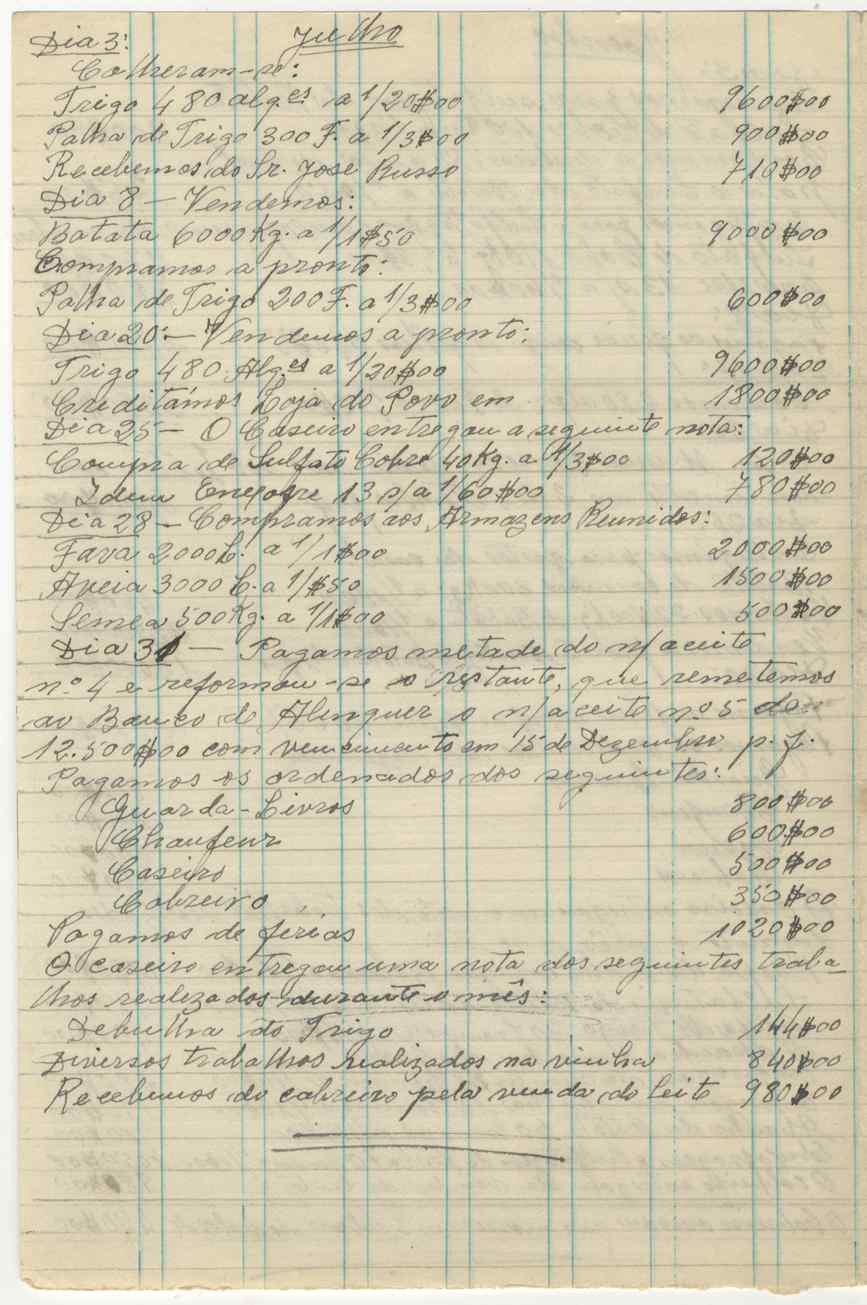 Julho
Dia 3:
Colheram-se:
Trigo 480 alq.es a 1/20$00 9600$00
Palha de Trigo 300 F. a 1/3$00 900$00
Recebemos do Sr. José Russo 710$00
Dia 8 - Vendemos:
Batata 6000 Kg. a 1/1$50 9000$00
Compramos a pronto:
Palha de Trigo 200 F. a 1/3$00 600$00
Dia 20: - Vendemos a pronto:
Trigo 480 Alq.es a 1/20$00 9600$00
Creditámos Loja do Povo em 1800$00
Dia 25 - O Caseiro entregou a seguinte nota:
Compra de Sulfato Cobre 40 Kg. a 1/3$00 120$00
Idem Enxofre 13 s/a 1/60$00 780$00
Dia 28 - Compramos aos Armazens Reunidos:
Fava 2000 L. a 1/1$00 2000$00
Aveia 3000 L. a 1/$50 1500$00
Semea 500 Kg. a 1/1$00 500$00
Dia 31 - Pagamos metade do n/aceite
nº 4 e reformou-se o restante, que remetemos
ao Banco de Alenquer o n/aceite nº 5 de
12.500$00 com vencimento em 15 de Dezembro p. f.
Pagamos os ordenados dos seguintes:
Guarda-Livros 800$00
Chaufeur 600$00
Caseiro 500$00
Cabreiro 350$00
Pagamos de férias 1020$00
O caseiro entregou uma nota dos seguintes traba
lhos realizados durante o mês:
Debulha do Trigo 144$00
Diversos trabalhos realizados na vinha 840$00
Recebemos do cabreiro pela venda do leite 980$00